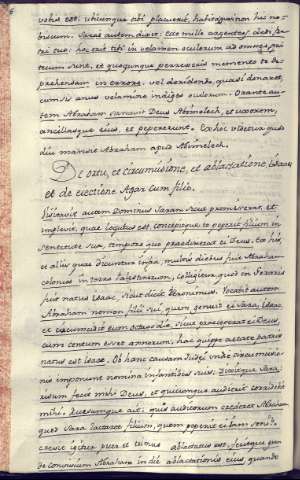 vobis est. ubicunque tibi placuerit, habita
biscum. Sarae autem dixit: Ecce mille argenteos dedi fra-
tri tuo: hoc erit tibi in velamen oculorum ad omnes qui te-
cum sunt, et quocunque perrexeris: memento te de-
prehensam in errore. vel deridendo, quasi donaret,
cum sis anus velamine indiges oculorum. Orante au-
tem Abraham sanavit Deus Abimelech, et uxorem,
ancillasque eius, et pepererunt. Ex hoc videtur quod
diu mansit Abraham apud Abimelech.
De ortu, et circumcisione, et ablactatione Isaac
et de eiectione Agar cum filio.
Visitavit autem Dominus Saram sicut promiserat, et
implevit quae locutus est. concepitque et peperit filium in
senectute sua, tempore quo praedixerat ei Deus. Ex his
et aliis quae dicuntur infra, multis diebus fuit Abraham
colonus in terra Palestinorum, colligitur, quod in Geraris
sit natus Isaac, sicut dicit Hieronimus. Vocavit autem
Abraham nomen filii sui, quem genuit ei Sara, Isaac
et circumcidit eum octavo die, sicut praeceperat ei Deus,
cum centum esset annorum: hac quippe aetate patris
natus est Isaac. Ob hanc causam Iudaei in die circumcisio-
nis imponunt nomina infantibus suis. Dixitque Sara:
risum fecit mihi Deus, et quicunque audierit corridebit
mihi. Rursumque ait: quis auditurum crederet Abraham
quod Sara lactaret filium, quem peperit ei iam seni?
Crevit igitur puer et ablactatus est, fecitque gran-
de convivium Abraham in die ablactationis eius quando